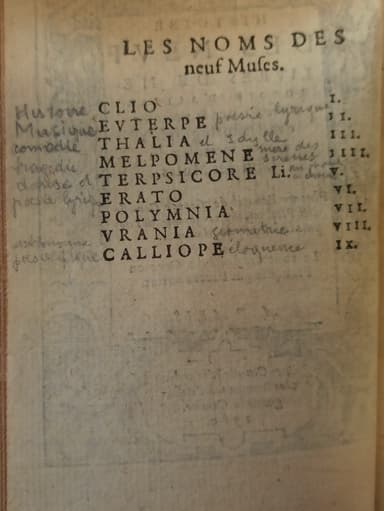 LES NOMS DES
neuf Muſes.
Histoire CLIO I.
Musique EVTERPE poesie lyrique II.
comedie THALIA et Idylle III.
tragedie MELPOMENE mere des sirenes IIII.
danse et TERPSICORE Li. V.
poesie lyrique ERATO VI.
POLYMNIA VII.
astronomie VRANIA geometrie VIII.
poesie CALLIOPE éloquence IX.